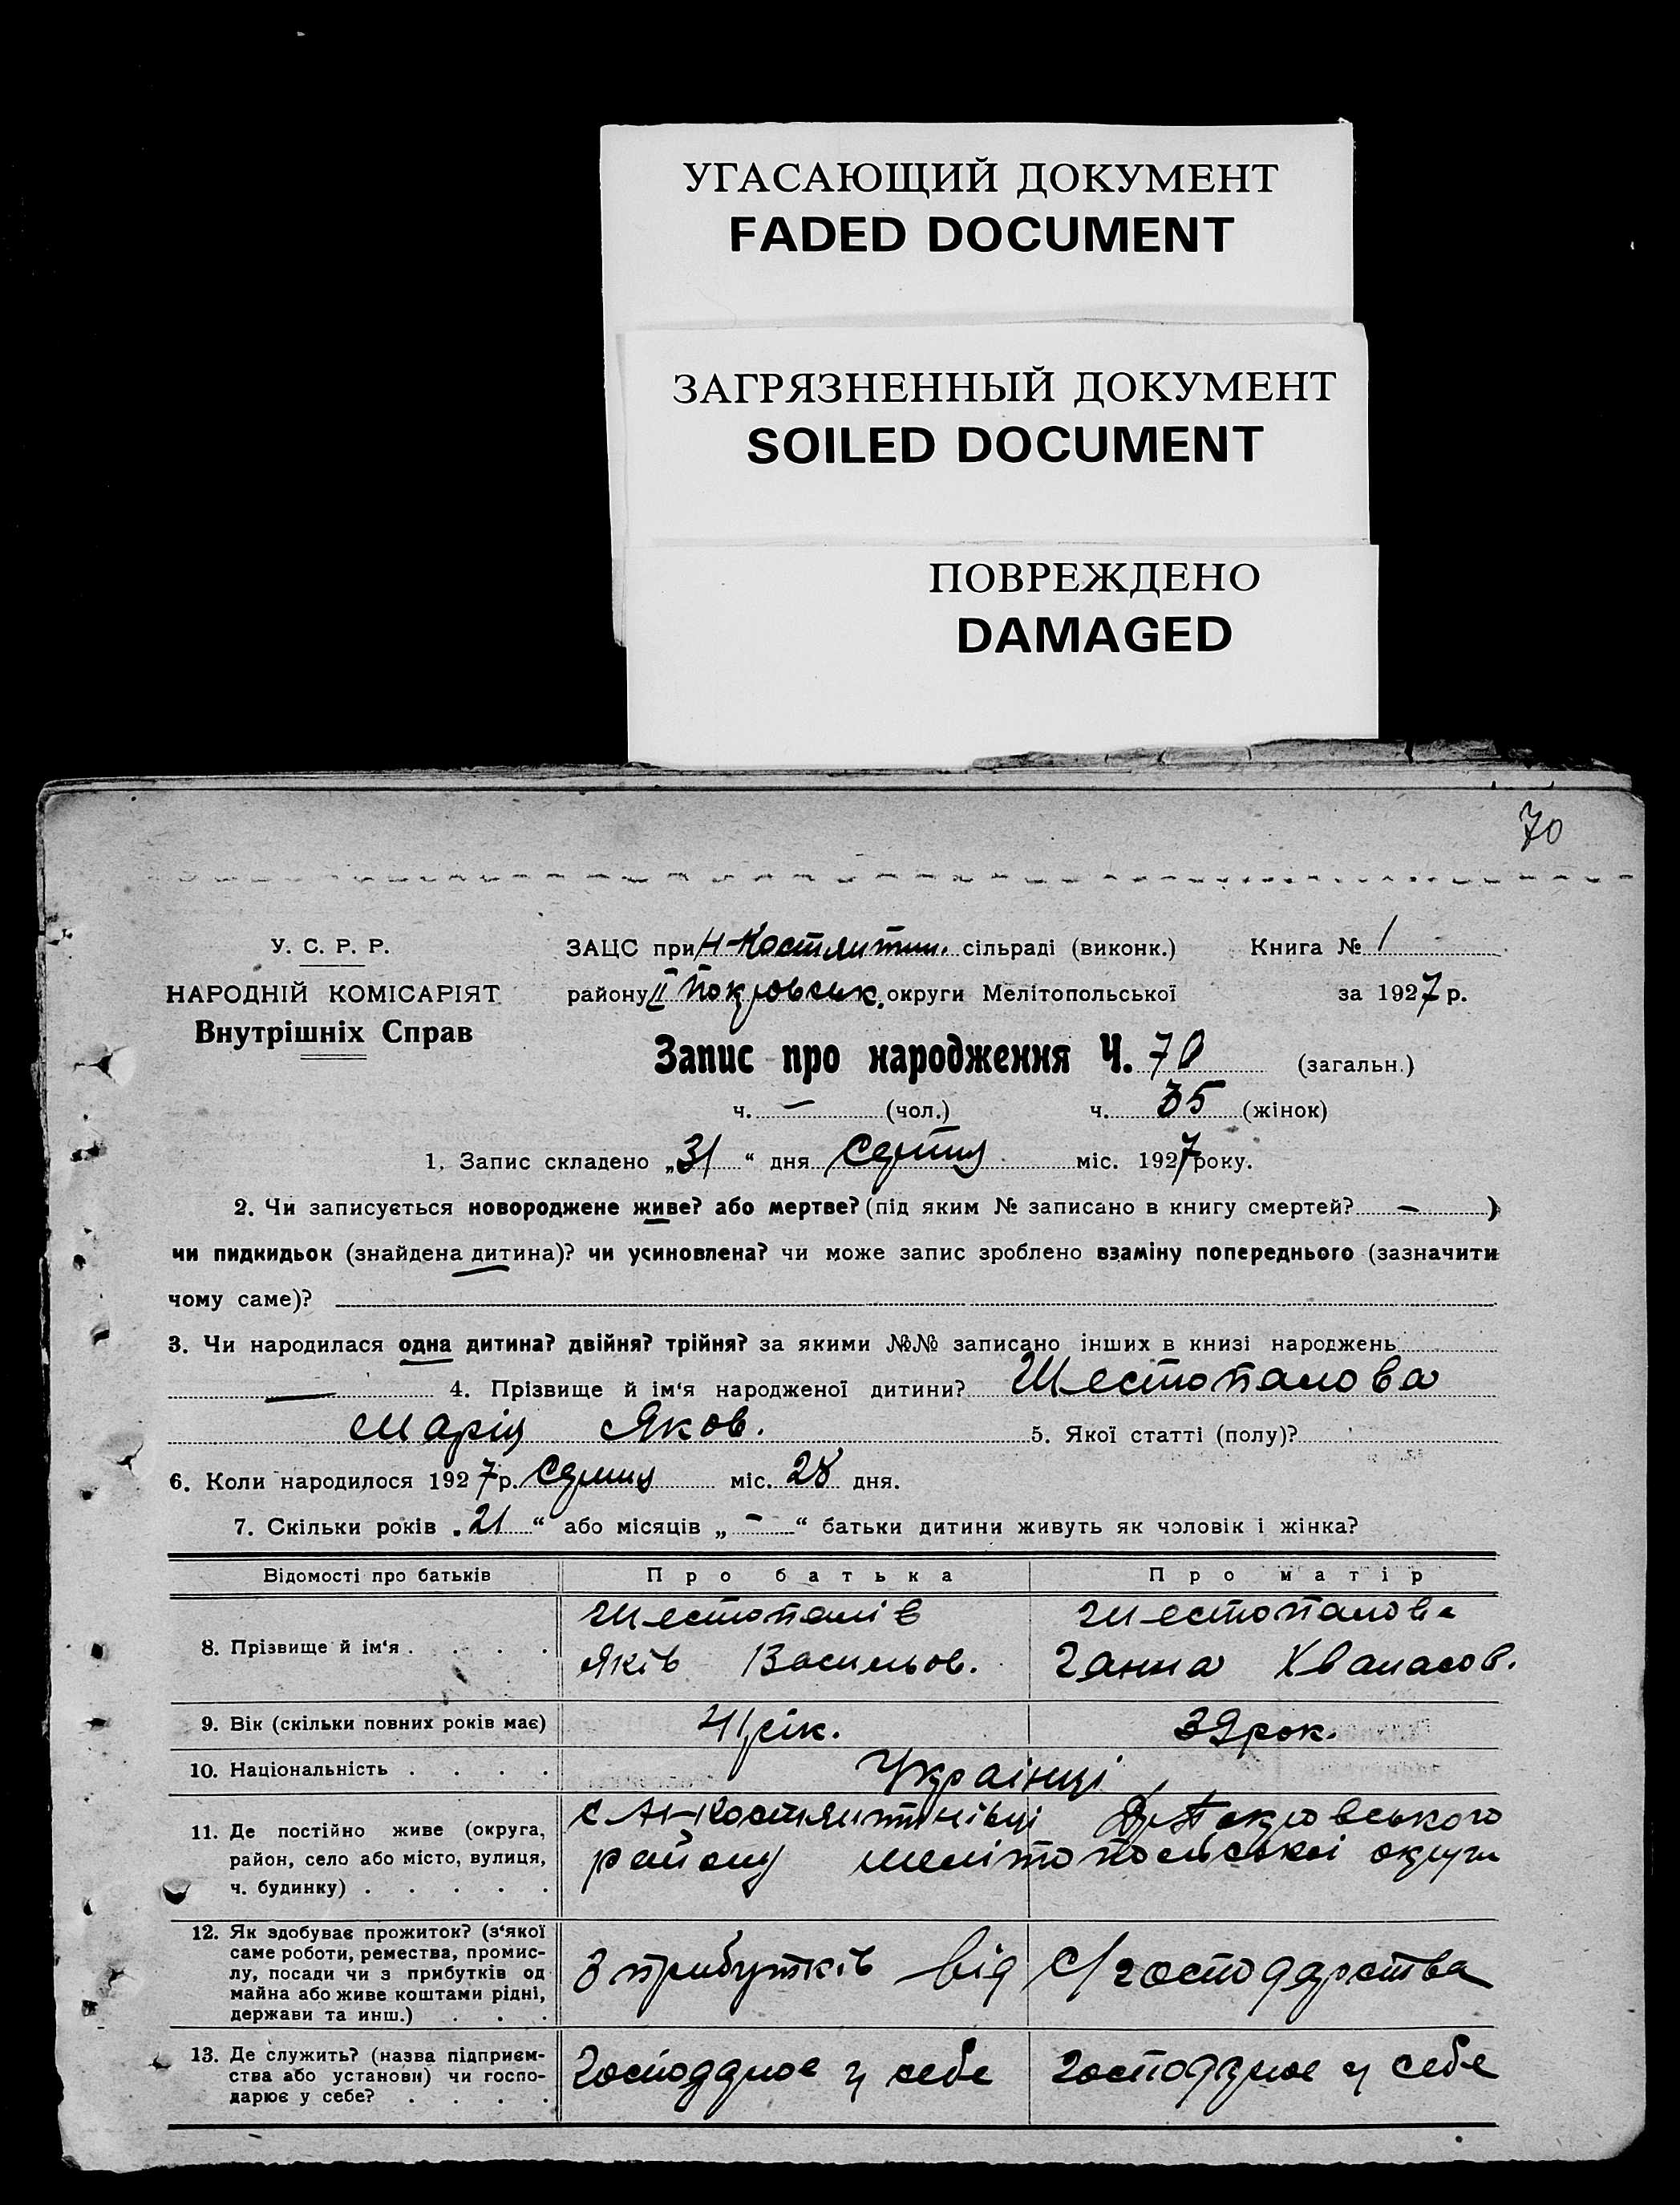 УГАСАЮЩИЙ ДОКУМЕНТ
FADED DOCUMENT
ЗАГРЯЗНЕННЫЙ ДОКУМЕНТ
SOILED DOCUMENT
ПОВРЕЖДЕНО
DAMAGED
70
У. С. Р. Р.
НАРОДНІЙ КОМІСАРІЯТ
Внутрішніх Справ
ЗАЦС при Н-Костянтин. сільраді (виконк.) Книга № 1
району ІІ Покровськ. округи Мелітопольської за 1927 р.
Запис про народження Ч. 70 (загальн.)
ч. — (чол.) ч. 35 (жінок)
1. Запис складено „31“ дня Серпня міс. 1927 року.
2. Чи записується новороджене живе? або мертве? (під яким № записано в книгу смертей? — )
чи пидкидьок (знайдена дитина)? чи усиновлена? чи може запис зроблено взаміну попереднього (зазначити
чому саме)?
3. Чи народилася одна дитина? двійня? трійня? за якими №№ записано інших в книзі народжень
— 4. Прізвище й ім‘я народженої дитини? Шестопалова
Марія Яков. 5. Якої статті (полу)?
6. Коли народилося 1927 р. Серпня міс. 28 дня.
7. Скільки років „21“ або місяців „-“ батьки дитини живуть як чоловік і жінка?
Відомості про батьків Про батька Про матір
8. Прізвище й ім‘я . . . .
Шестопалів
Яків Васильов.
Шестопалова
Ганна Хванасов.
9. Вік (скільки повних років має) 41 рік. 39 рок.
10. Національність . . . . Українці
11. Де постійно живе (округа,
район, село або місто, вулиця,
ч. будинку) . . . . .
с Н-Костянтинівці Покровського
району Мелітопольської округи
12. Як здобуває прожиток? (з‘якої
саме роботи, ремества, промис-
лу, посади чи з прибутків од
майна або живе коштами рідні,
держави та инш.) . . .
З прибутків від с/господарства
13. Де служить? (назва підприєм-
ства або установи) чи госпо-
дарює у себе? . . . .
Господарює у себе
Господарює у себе